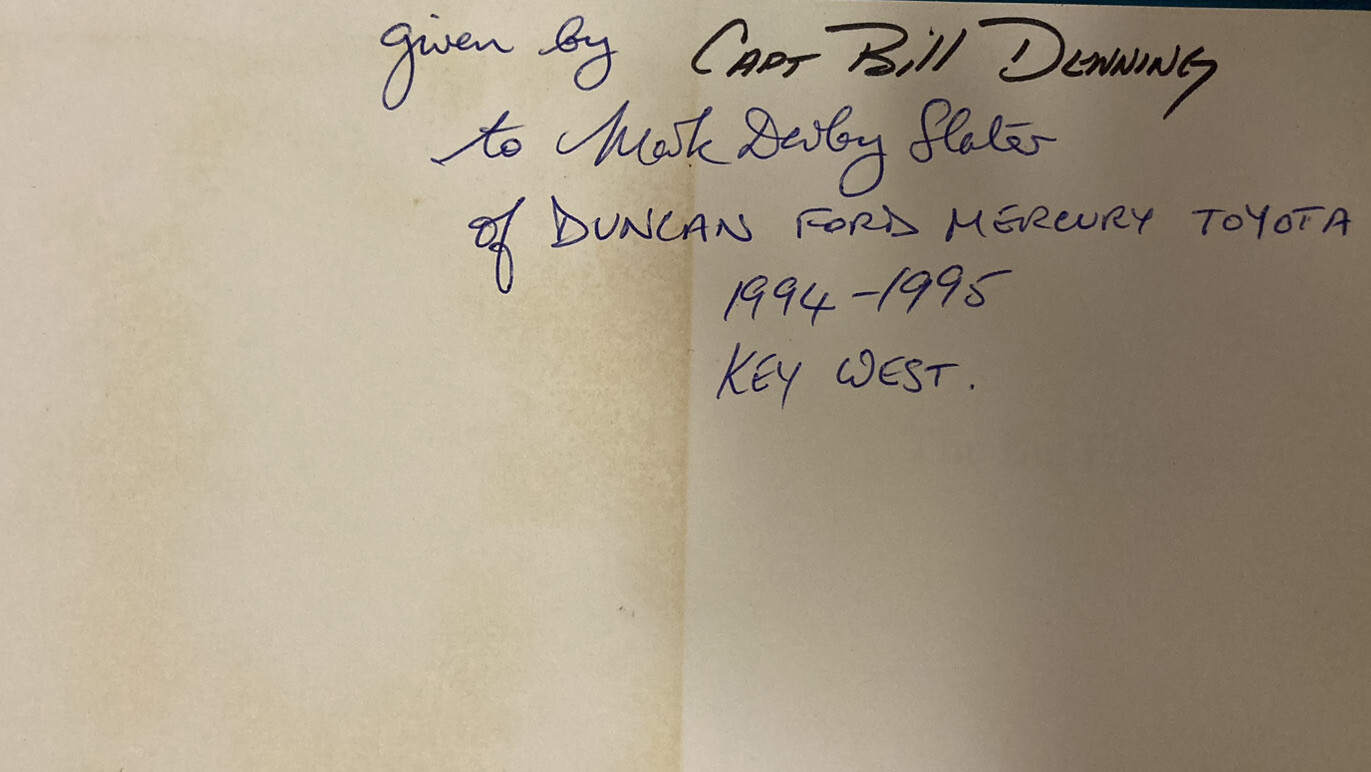 given by CAPT Bill DENNING
to Mark Derby Slater
of DUNCAN FORD MERCURY TOYOTA
1994-1995
KEY WEST.